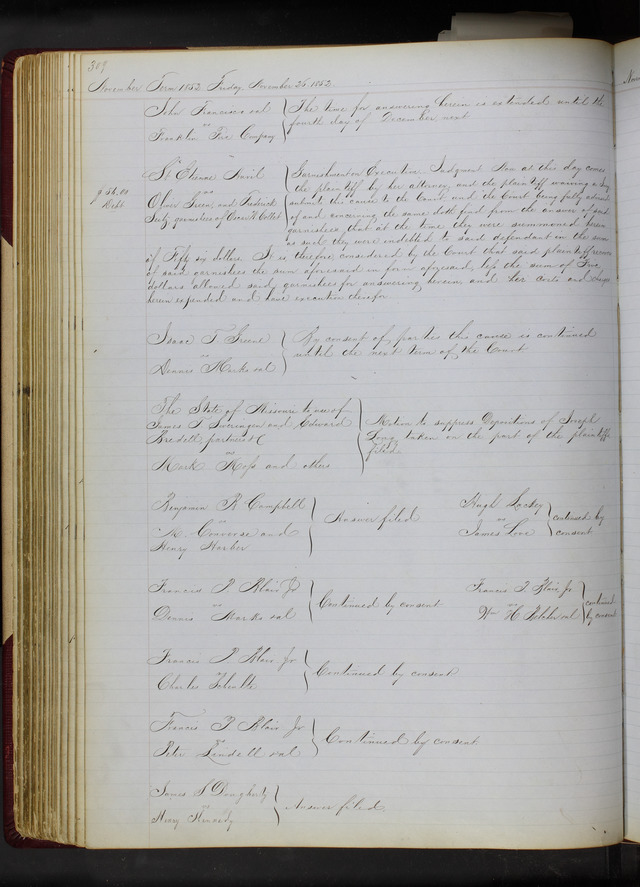 309
November Term 1852 Friday November 26 1852
John Francisco et al
vs
Franklin Fire Company
The time for answering herein is extended until the
fourth day of December next
St Etienne
vs
Oliver and Frederick
garnishees of Oscar W Collet
$56.00
Debt
Garnishment on Execution Judgment Now at this day comes
the plaintiff by her attorney and the plaintiff waiving a Jury
submits the cause to the Court and the Court being fully advised
of and concerning the same doth find from the answer of said
garnishees that at the time they were summoned herein
as such they were indebted to said defendant in the sum
of Fifty six dollars It is therefore considered by the Court that said plaintiff recover
of said garnishees the sum aforesaid in form aforesaid, less the sum of Five
dollars allowed said garnishees for answering herein and her costs and charges
herein expended and have execution therefor
Isaac T Greene
vs
Dennis Marks et al
By consent of parties this cause is continued
until the next term of the Court
The State of Missouri to use of
James T Swearingen and Edward
Bredell partners &c
vs
Mark Ross and others
Motion to suppress Depositions of Joseph
Long taken on the part of the plaintiffs
filed
Benjamin R Campbell
vs
Converse and
Henry Harber
Answer filed
Hugh Lackey
vs
James Love
continued by
consent
Francis P. Blair Jr
vs
Dennis Marks et al
Continued by consent
Francis P Blair Jr
vs
Wm H. et al
continued
by consent
Francis P Blair Jr
vs
Charles Schultz
Continued by consent
Francis P. Blair Jr
vs
Peter Lindell et al
Continued by consent
James S Dougherty
vs
Henry Kennedy
Answer filed